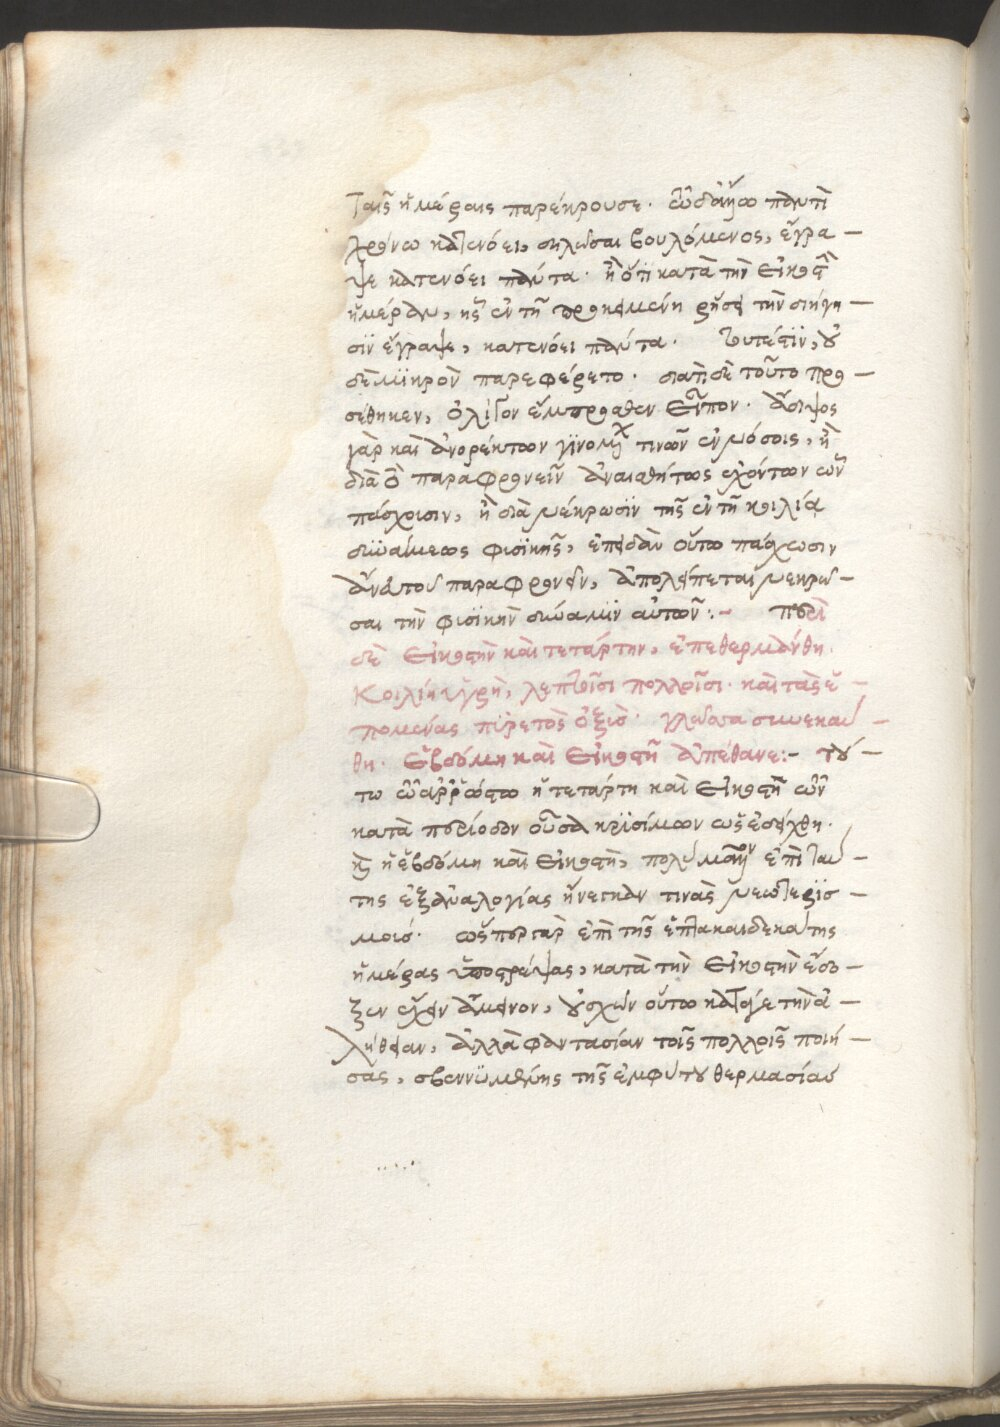 ταῖς ἡμέραις παρέκρουσε. ἐν δὲ τῷ παντὶ
χρόνῳ κατενόει, δηλῶσαι βουλόμενος, ἔγρα –
ψε κατενόει πάντα. ἢ ὅτι κατὰ τὴν εἰκοστὴν
ἡμέραν, ἧς ἐν τῇ προκειμένῃ ῥήσει τὴν διήγη –
σιν ἔγραψε, κατενόει πάντα. τουτέστιν, οὐ
δὲ μικρὸν παρεφέρετο. διατὶ δὲ τοῦτο προ –
σέθηκεν, ὀλίγον ἔμπροσθεν εἶπον. ἄδιψος
γὰρ καὶ ἀνορέκτων γινομένων τινῶν ἐν νόσοις, ἢ
διὰ τὸ παραφρονεῖν ἀναισθήτως ἐχόντων ὧν
πάσχουσιν, ἢ διὰ νέκρωσιν τῆς ἐν τῇ κοιλίᾳ
δυνάμεως φυσικῆς, ἐπειδὰν οὕτω πάσχωσιν
ἄνευ τοῦ παραφρονεῖν, ἀπολείπεται νεκρῶ –
σαι τὴν φυσικὴν δύναμιν αὐτῶν :– περὶ
δὲ εἰκοστὴν καὶ τετάρτην, ἐπεθερμάνθη.
κοιλίη ὑγρὴ, λεπτοῖσι πολλοῖσι. καὶ τὰς ἑ –
πομένας πυρετὸς ὀξύς. γλῶσσα συνεκαύ –
θη. ἑβδόμῃ καὶ εἰκοστῇ ἀπέθανε :– τού –
τῳ τῷ ἀρρώστῳ ἡ τετάρτη καὶ εἰκοστὴ τῶν
κατὰ περίοδον οὖσα κρισίμων ὡς ἐδείχθη.
καὶ ἡ ἑβδόμη καὶ εἰκοστὴ, πολέμιον ἐπὶ ταύ –
της ἐξ ἀναλογίας ἤνεγκάν τινας νεωτερισ –
μούς. ὥσπερ γὰρ ἐπὶ τῆς ἑπτακαιδεκάτης
ἡμέρας ὑποστρέψας, κατὰ τὴν εἰκοστὴν ἔδο –
ξεν ἔχειν ἄμεινον, οὐσχὼν οὕτω κατάγε τὴν ἀ –
λήθειαν, ἀλλὰ φαντασίαν τοῖς πολλοῖς ποιή –
σας, σβεννυμένης τῆς ἐμφύτου θερμασίας